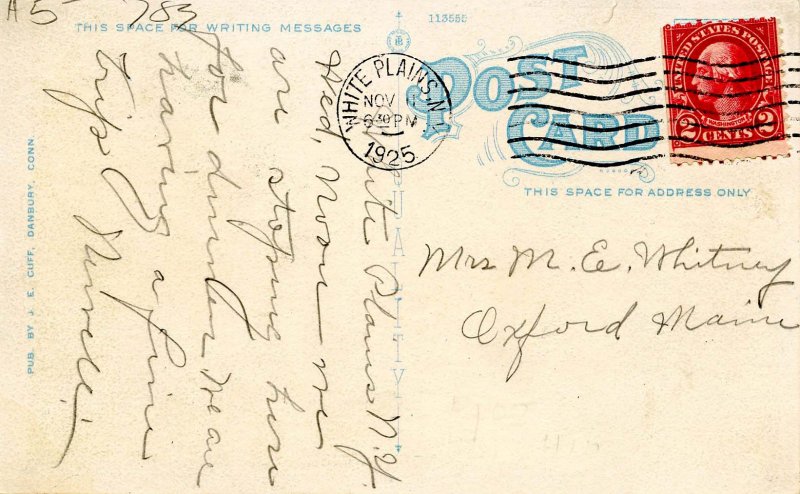 A5- 783
THIS SPACE FOR WRITING MESSAGES
113555
POST
CARD
THIS SPACE FOR ADDRESS ONLY
WHITE PLAINS, N.Y.
NOV 11
6 30 PM
1925
UNITED STATES POSTAGE
WASHINGTON
2 CENTS 2
QUALITY
White Plains N.Y.
Wed, Noon we
are stoping here
for dinner We are
having a fine
trip
Mrs M. E. Whitney
Oxford Maine
PUB. BY J. E. CUFF, DANBURY, CONN.